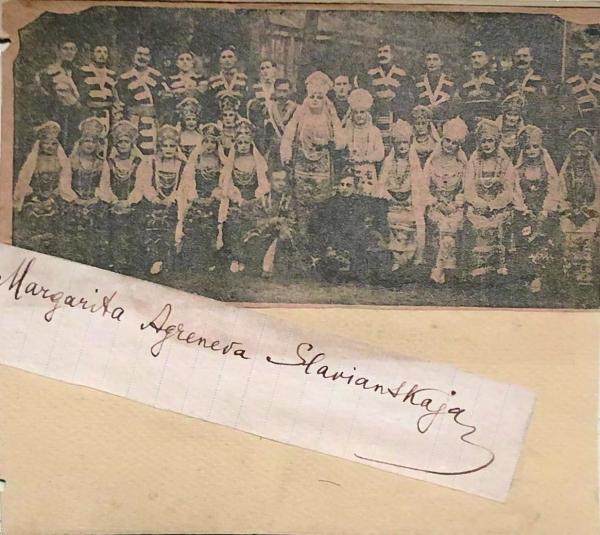 Margarita Agreneva Slavianskaja